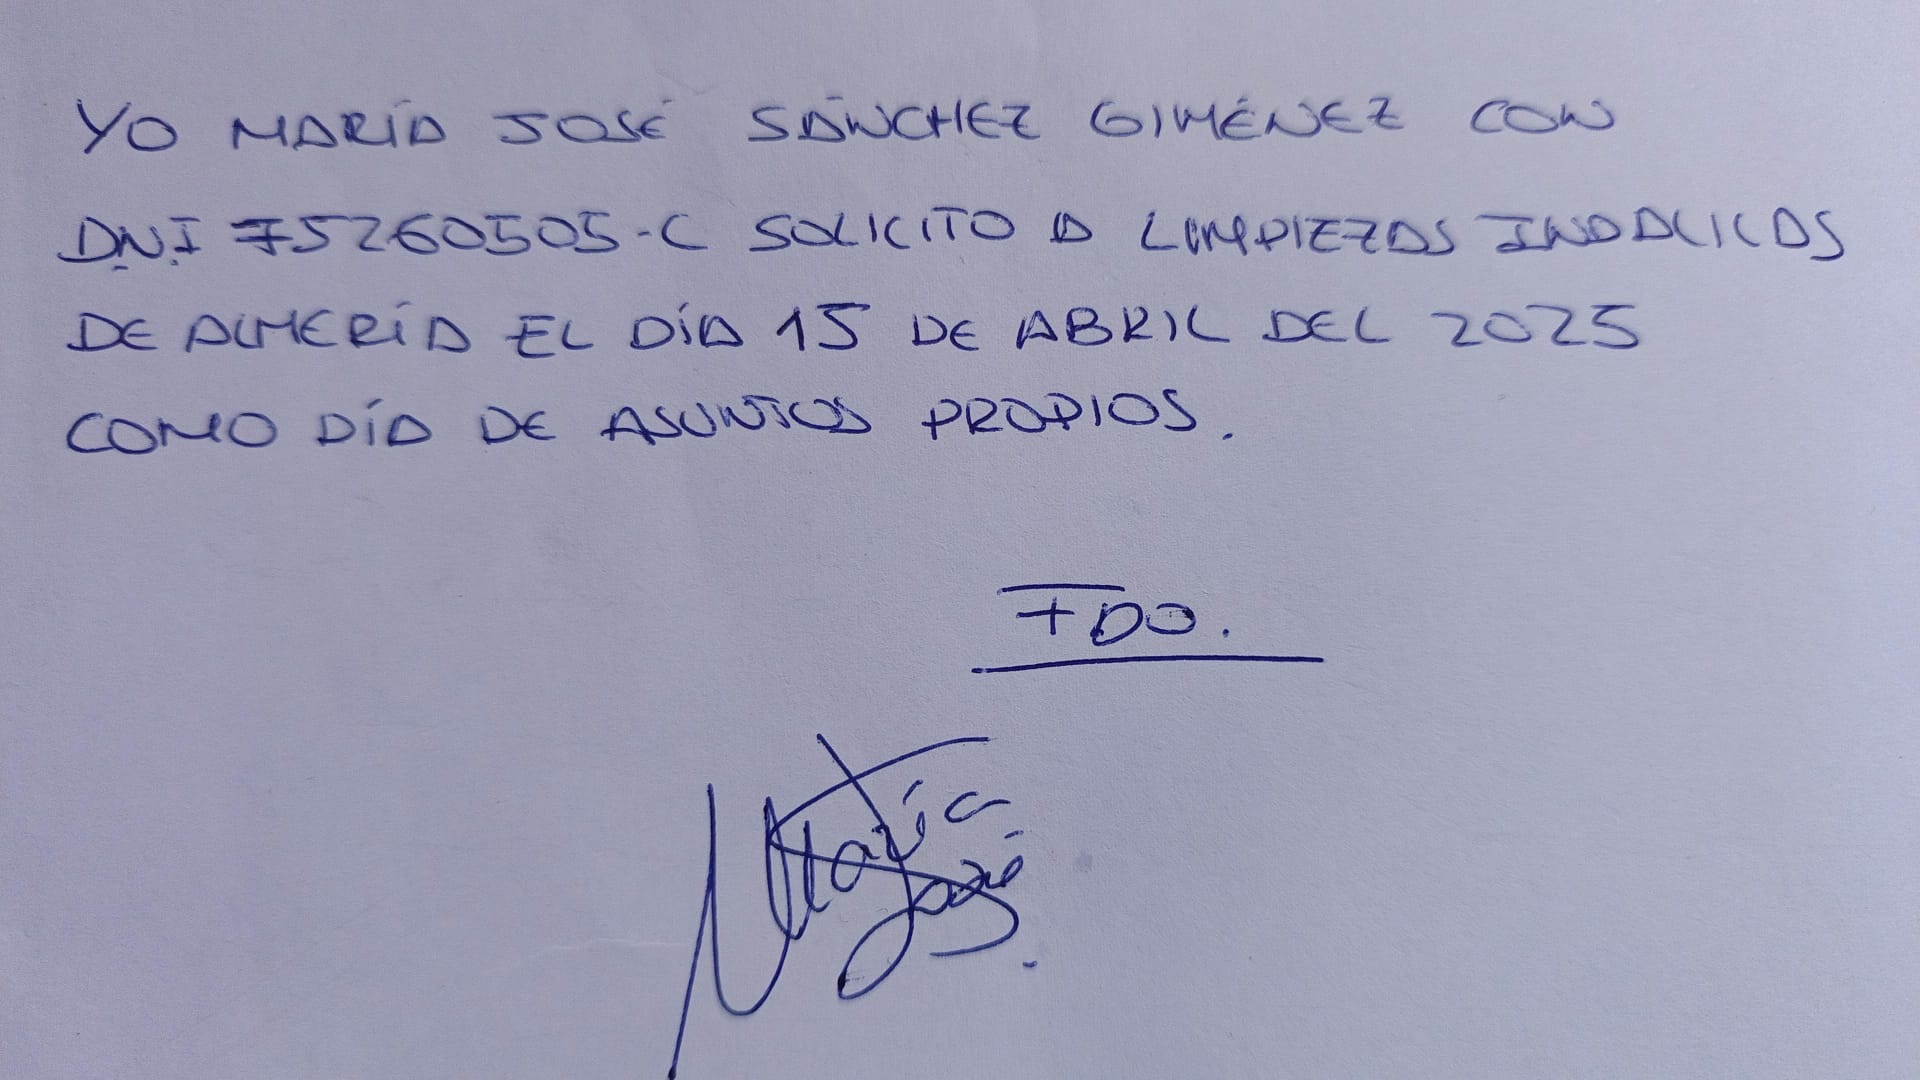 YO MARÍA JOSÉ SÁNCHEZ GIMÉNEZ CON
D.N.I 75260505-C SOLICITO A LIMPIEZAS INDALICAS
DE ALMERÍA EL DÍA 15 DE ABRIL DEL 2025
COMO DÍA DE ASUNTOS PROPIOS.
FDO.
María
José